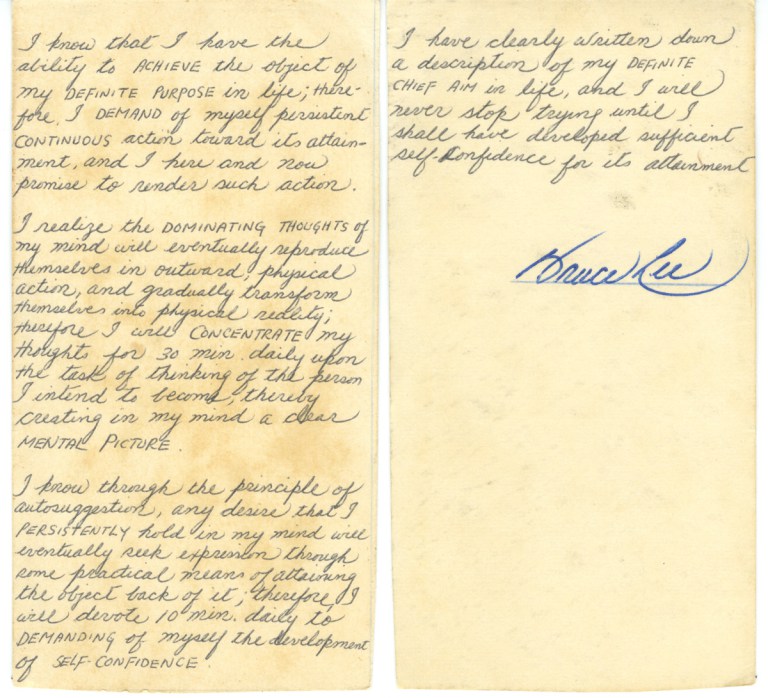 I know that I have the
ability to ACHIEVE the object of
my DEFINITE PURPOSE in life; there-
fore, I DEMAND of myself persistent
CONTINUOUS action toward its attain-
ment, and I here and now
promise to render such action.
I realize the DOMINATING THOUGHTS of
my mind will eventually reproduce
themselves in outward, physical
action, and gradually transform
themselves into physical reality;
therefore I will CONCENTRATE my
thoughts for 30 min. daily upon
the task of thinking of the person
I intend to become, thereby
creating in my mind a clear
MENTAL PICTURE.
I know through the principle of
autosuggestion, any desire that I
PERSISTENTLY hold in my mind will
eventually seek expression through
some practical means of attaining
the object back of it; therefore, I
will devote 10 min. daily to
DEMANDING of myself the development
of SELF-CONFIDENCE.
I have clearly written down
a description of my DEFINITE
CHIEF AIM in life, and I will
never stop trying until I
shall have developed sufficient
self-confidence for its attainment
Bruce Lee